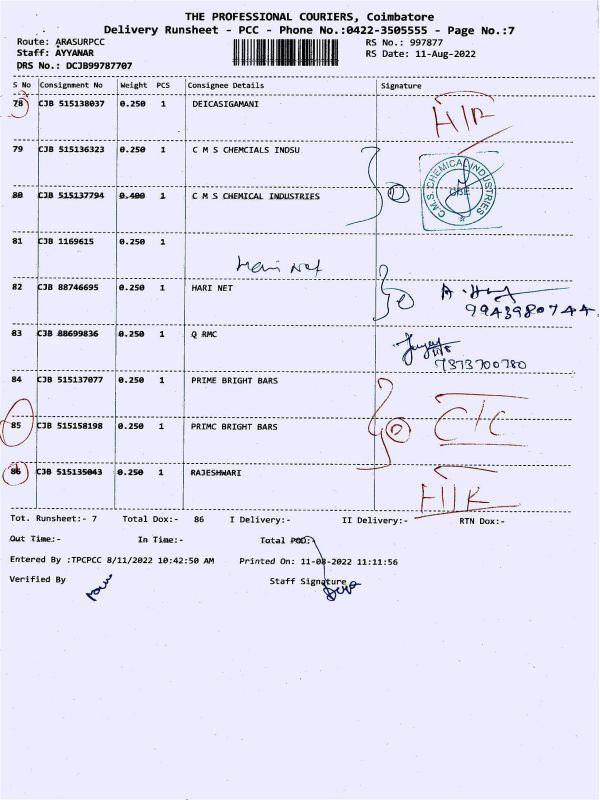 THE PROFESSIONAL COURIERS, Coimbatore
Delivery Runsheet - PCC - Phone No.:0422-3505555 - Page No.:7
Route: ARASURPCC RS No.: 997877
Staff: AYYANAR RS Date: 11-Aug-2022
DRS No.: DCJB99787707
S No Consignment No Weight PCS Consignee Details Signature
78 CJB 515138037 0.250 1 DEICASIGAMANI
79 CJB 515136323 0.250 1 C M S CHEMCIALS INDSU
C.M.S. CHEMICAL INDUSTRIES CBE
80 CJB 515137794 0.400 1 C M S CHEMICAL INDUSTRIES
81 CJB 1169615 0.250 1
Hari Net
82 CJB 88746695 0.250 1 HARI NET
9943980744
83 CJB 88699836 0.250 1 Q RMC
7373700780
84 CJB 515137077 0.250 1 PRIME BRIGHT BARS
C/C
85 CJB 515158198 0.250 1 PRIMC BRIGHT BARS
86 CJB 515135043 0.250 1 RAJESHWARI
Tot. Runsheet:- 7 Total Dox:- 86 I Delivery:- II Delivery:- RTN Dox:-
Out Time:- In Time:- Total POD:-
Entered By :TPCPCC 8/11/2022 10:42:50 AM Printed On: 11-08-2022 11:11:56
Verified By Staff Signature